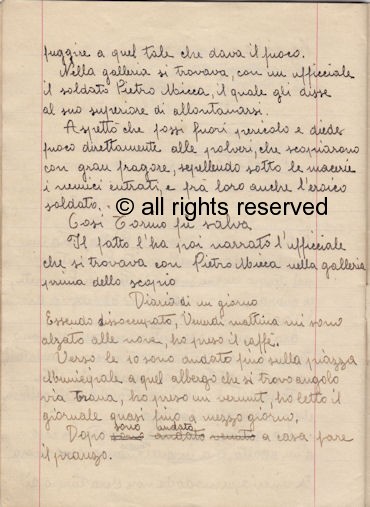 fuggire a quel tale che dava il fuoco.
Nella galleria si trovava, con un ufficiale
il soldato Pietro Micca, il quale gli disse
al suo superiore di allontanarsi.
Aspettò che fossi fuori pericolo e diede
fuoco direttamente alle polveri, che scopiarono
con gran fragore, sepellendo sotto le macerie
i nemici entrati, e frà loro anche l'eroico
soldato.
© all rights reserved
Così Torino fù salva
Il fatto l'ha poi narrato l'ufficiale
che si trovava con Pietro Micca nella galleria
prima dello scopio
Diario di un giorno
Essendo dissoccupato, Venerdi mattina mi sono
alzato alle nove, ho preso il caffè.
Verso le 10 sono andato fino sulla piazza
Municipale a quel albergo che si trova angolo
via, ho preso un vermut, ho letto il
giornale quasi fino a mezzo giorno.
sono andato
Dopo sono andato venuto a casa fare
il pranzo.